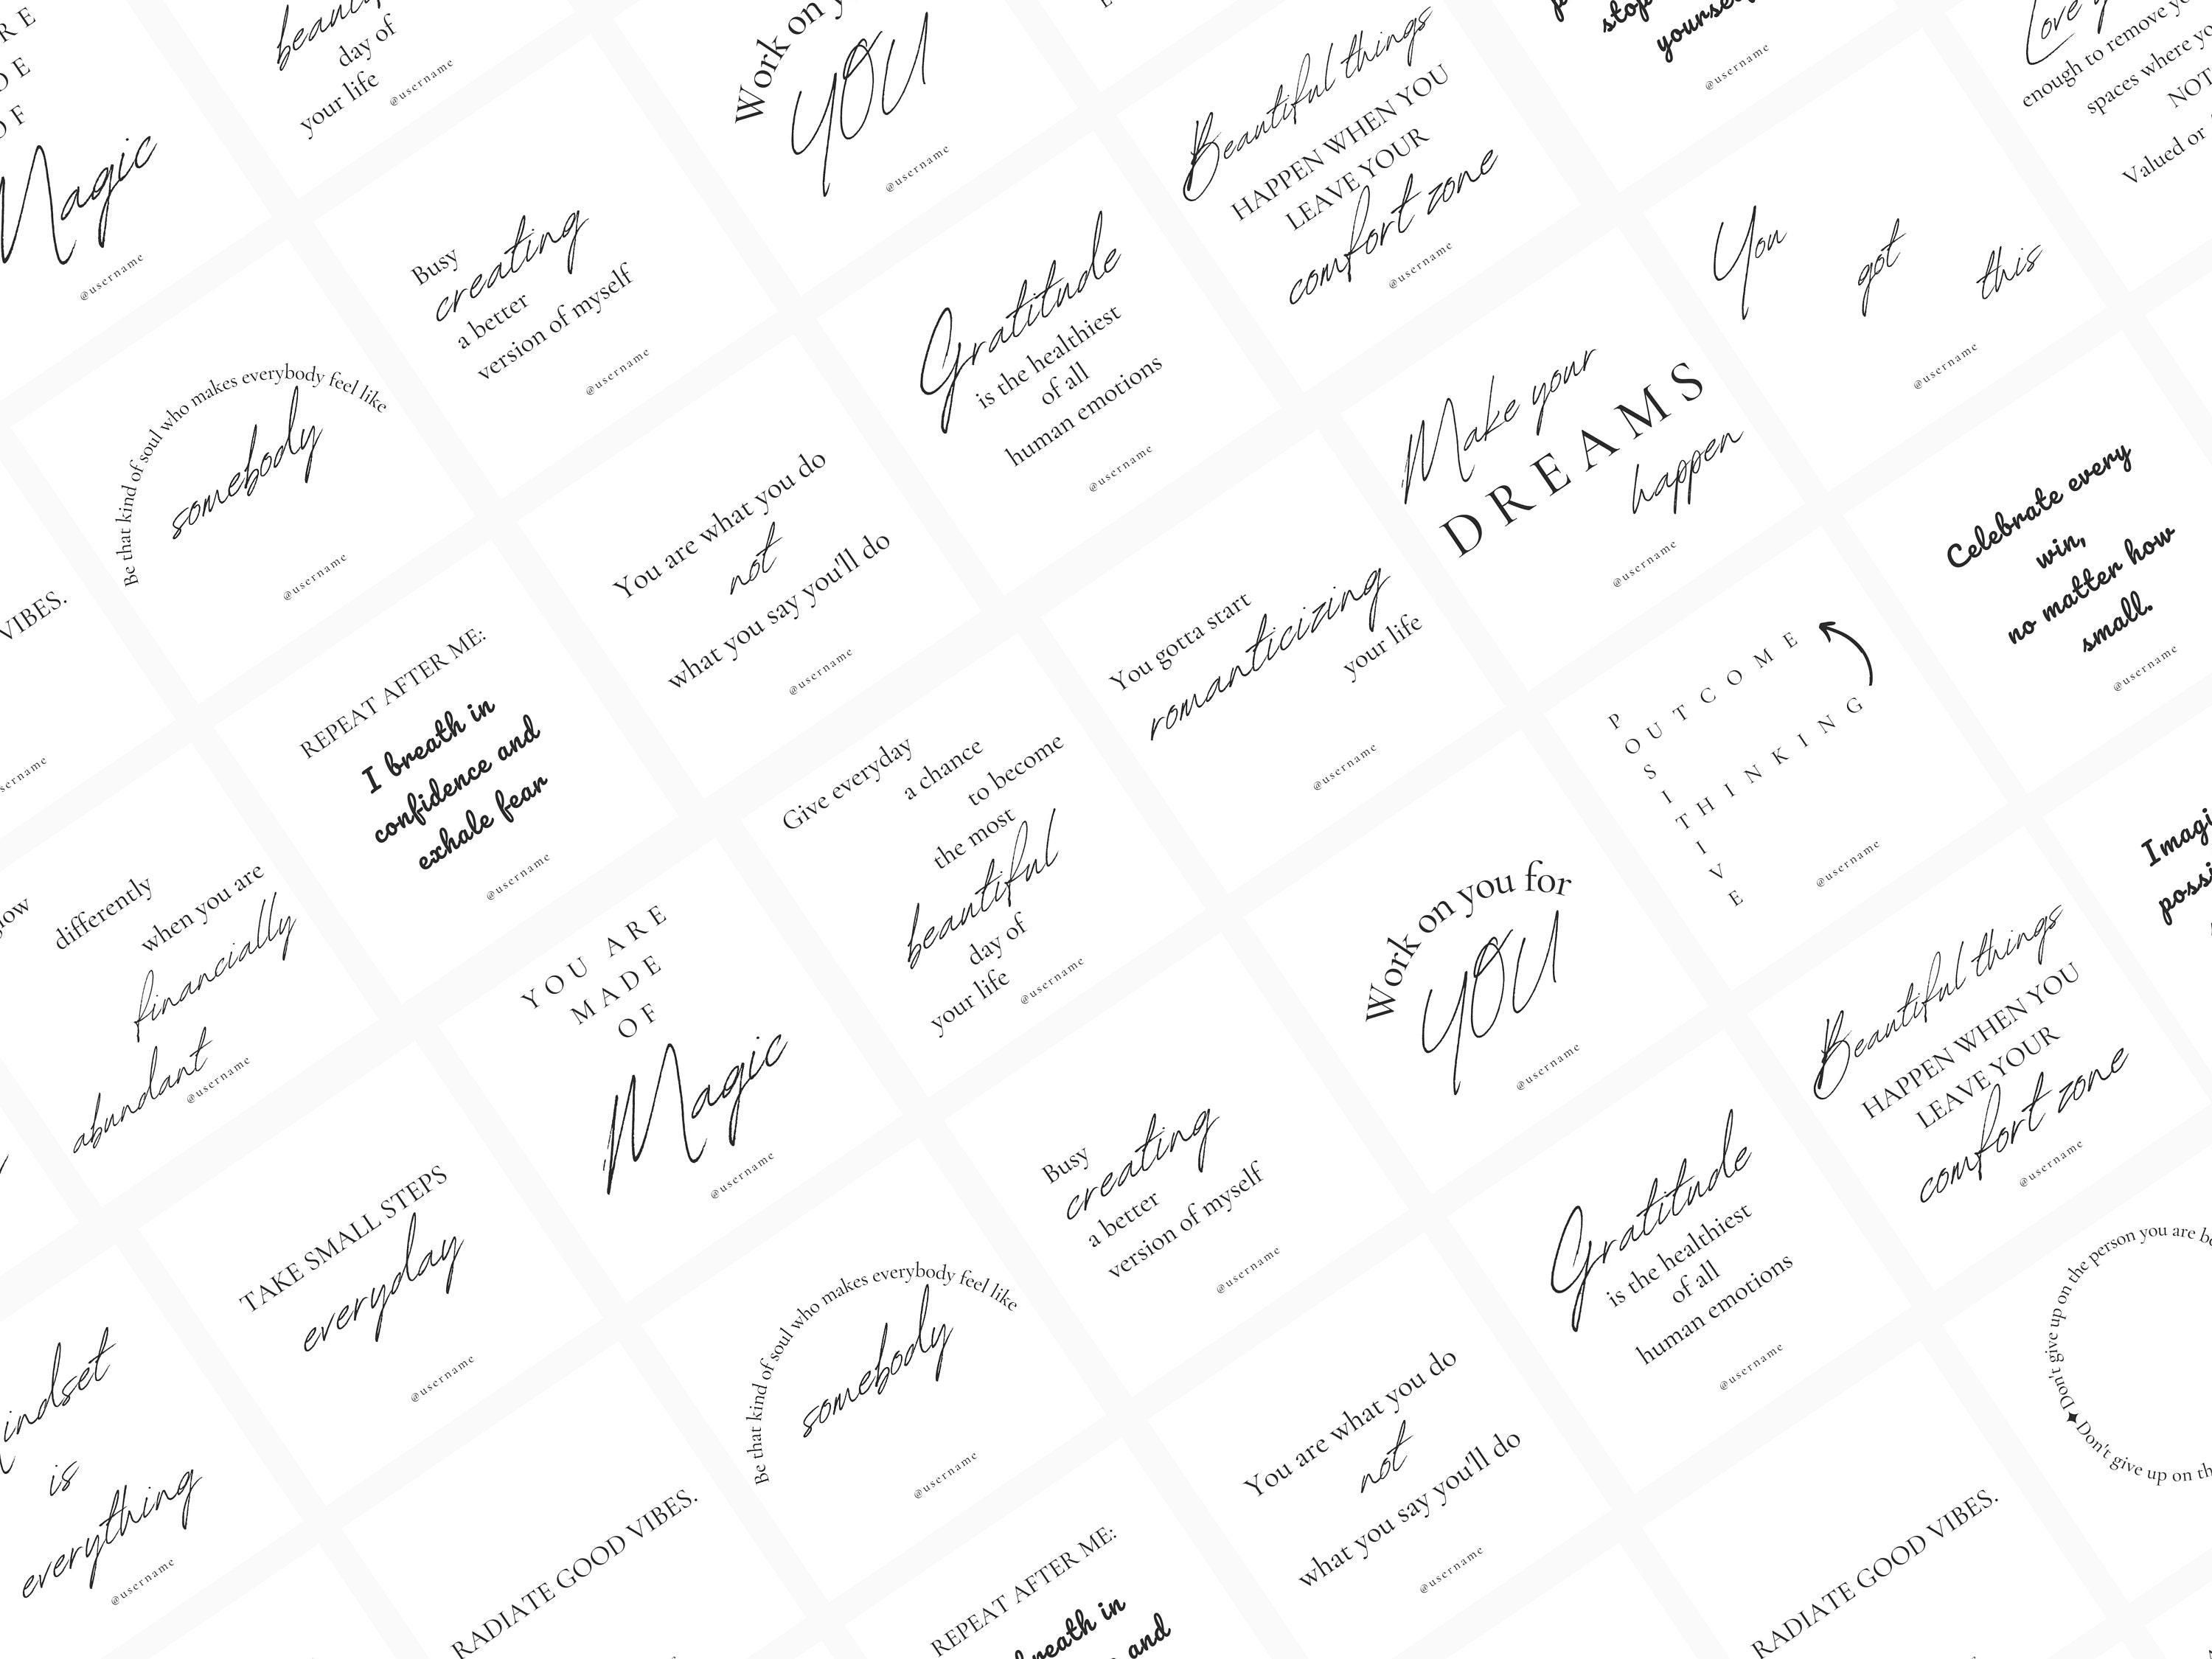 RE
DE
OF
Magic
@username
day of
your life
@username
Work on
YOU
@username
Beautiful things
HAPPEN WHEN YOU
LEAVE YOUR
comfort zone
@username
yourself
@username
Love
enough to remove
spaces where
NOT
Valued or
Busy
creating
a better
version of myself
@username
Gratitude
is the healthiest
of all
human emotions
@username
You got this
@username
Be that kind of soul who makes everybody feel like
somebody
@username
You are what you do
not
what you say you'll do
@username
Make your
DREAMS
happen
@username
Celebrate every
win,
no matter how
small.
@username
VIBES.
REPEAT AFTER ME:
I breath in
confidence and
exhale fear
@username
Give everyday
a chance
to become
the most
beautiful
day of
your life
@username
You gotta start
romanticizing
your life
@username
POSITIVE
OUTCOME
THINKING
@username
differently
when you are
financially
abundant
@username
YOU ARE
MADE
OF
Magic
@username
Work on you for
YOU
@username
Beautiful things
HAPPEN WHEN YOU
LEAVE YOUR
comfort zone
@username
TAKE SMALL STEPS
everyday
@username
Busy
creating
a better
version of myself
@username
Gratitude
is the healthiest
of all
human emotions
@username
is
everything
@username
Be that kind of soul who makes everybody feel like
somebody
@username
You are what you do
not
what you say you'll do
@username
Don't give up on the person you are
Don't give up on
RADIATE GOOD VIBES.
REPEAT AFTER ME:
breath in
and
RADIATE GOOD VIBES.